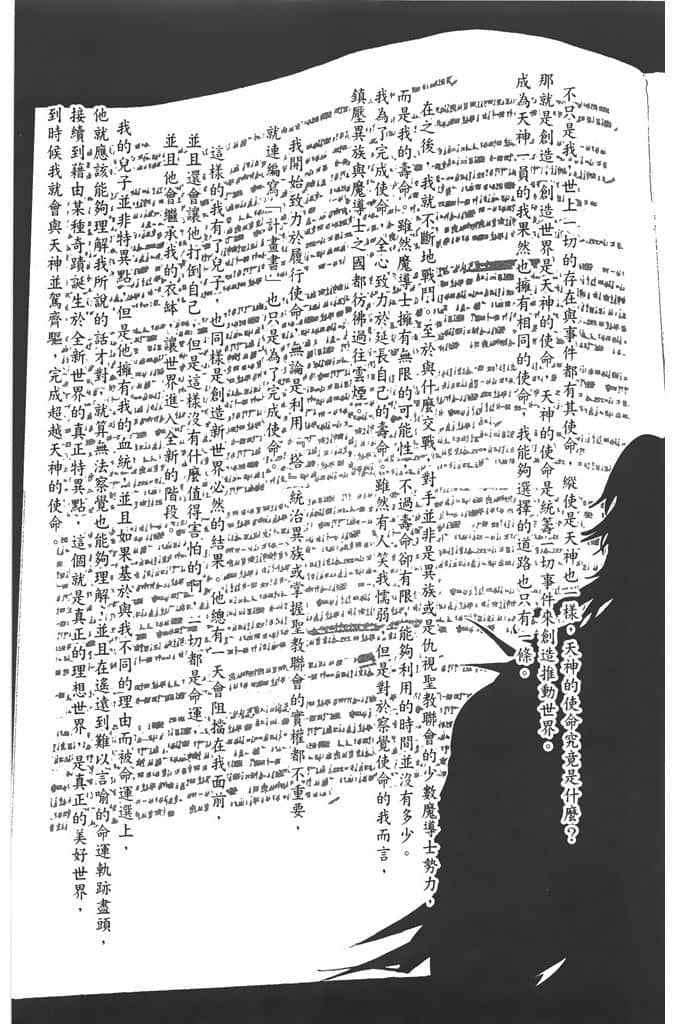 不只是我，世上一切的存在與事件都有其使命，縱使是天神也一樣，天神的使命究竟是什麼？
那就是創造，創造世界是天神的使命，天神的使命是統籌一切事件來創造推動世界。
成為天神一員的我果然也擁有相同的使命，我能夠選擇的道路也只有一條。
在之後，我就不斷地戰鬥。至於與什麼交戰，對手並非是異族或是仇視聖教聯會的少數魔導士勢力，
而是我的壽命。雖然魔導士擁有無限的可能性，不過壽命卻有限，能夠利用的時間並沒有多少。
我為了完成使命，全心致力於延長自己的壽命。雖然有人笑我懦弱，但是對於察覺使命的我而言，
鎮壓異族與魔導士之國都彷彿過往雲煙。
我開始致力於履行使命，無論是利用『塔』統治異族或掌握聖教聯會的實權都不重要，
就連編寫「計畫書」也只是為了完成使命。
這樣的我有了兒子，也同樣是創造新世界必然的結果。他總有一天會阻擋在我面前，
並且還會讓他打倒自己，但是這樣沒有什麼值得害怕的啊，一切都是命運，
並且他會繼承我的衣缽，讓世界進入全新的階段。
我的兒子並非特異點，但是他擁有我的血統，並且如果基於與我不同的理由而被命運選上，
他就應該能夠理解我所說的話才對，就算無法察覺也能夠理解，並且在遙遠到難以言喻的命運軌跡盡頭，
接續到藉由某種奇蹟誕生於全新世界的真正特異點，這個就是真正的理想世界，是真正的美好世界，
到時候我就會與天神並駕齊驅，完成超越天神的使命。